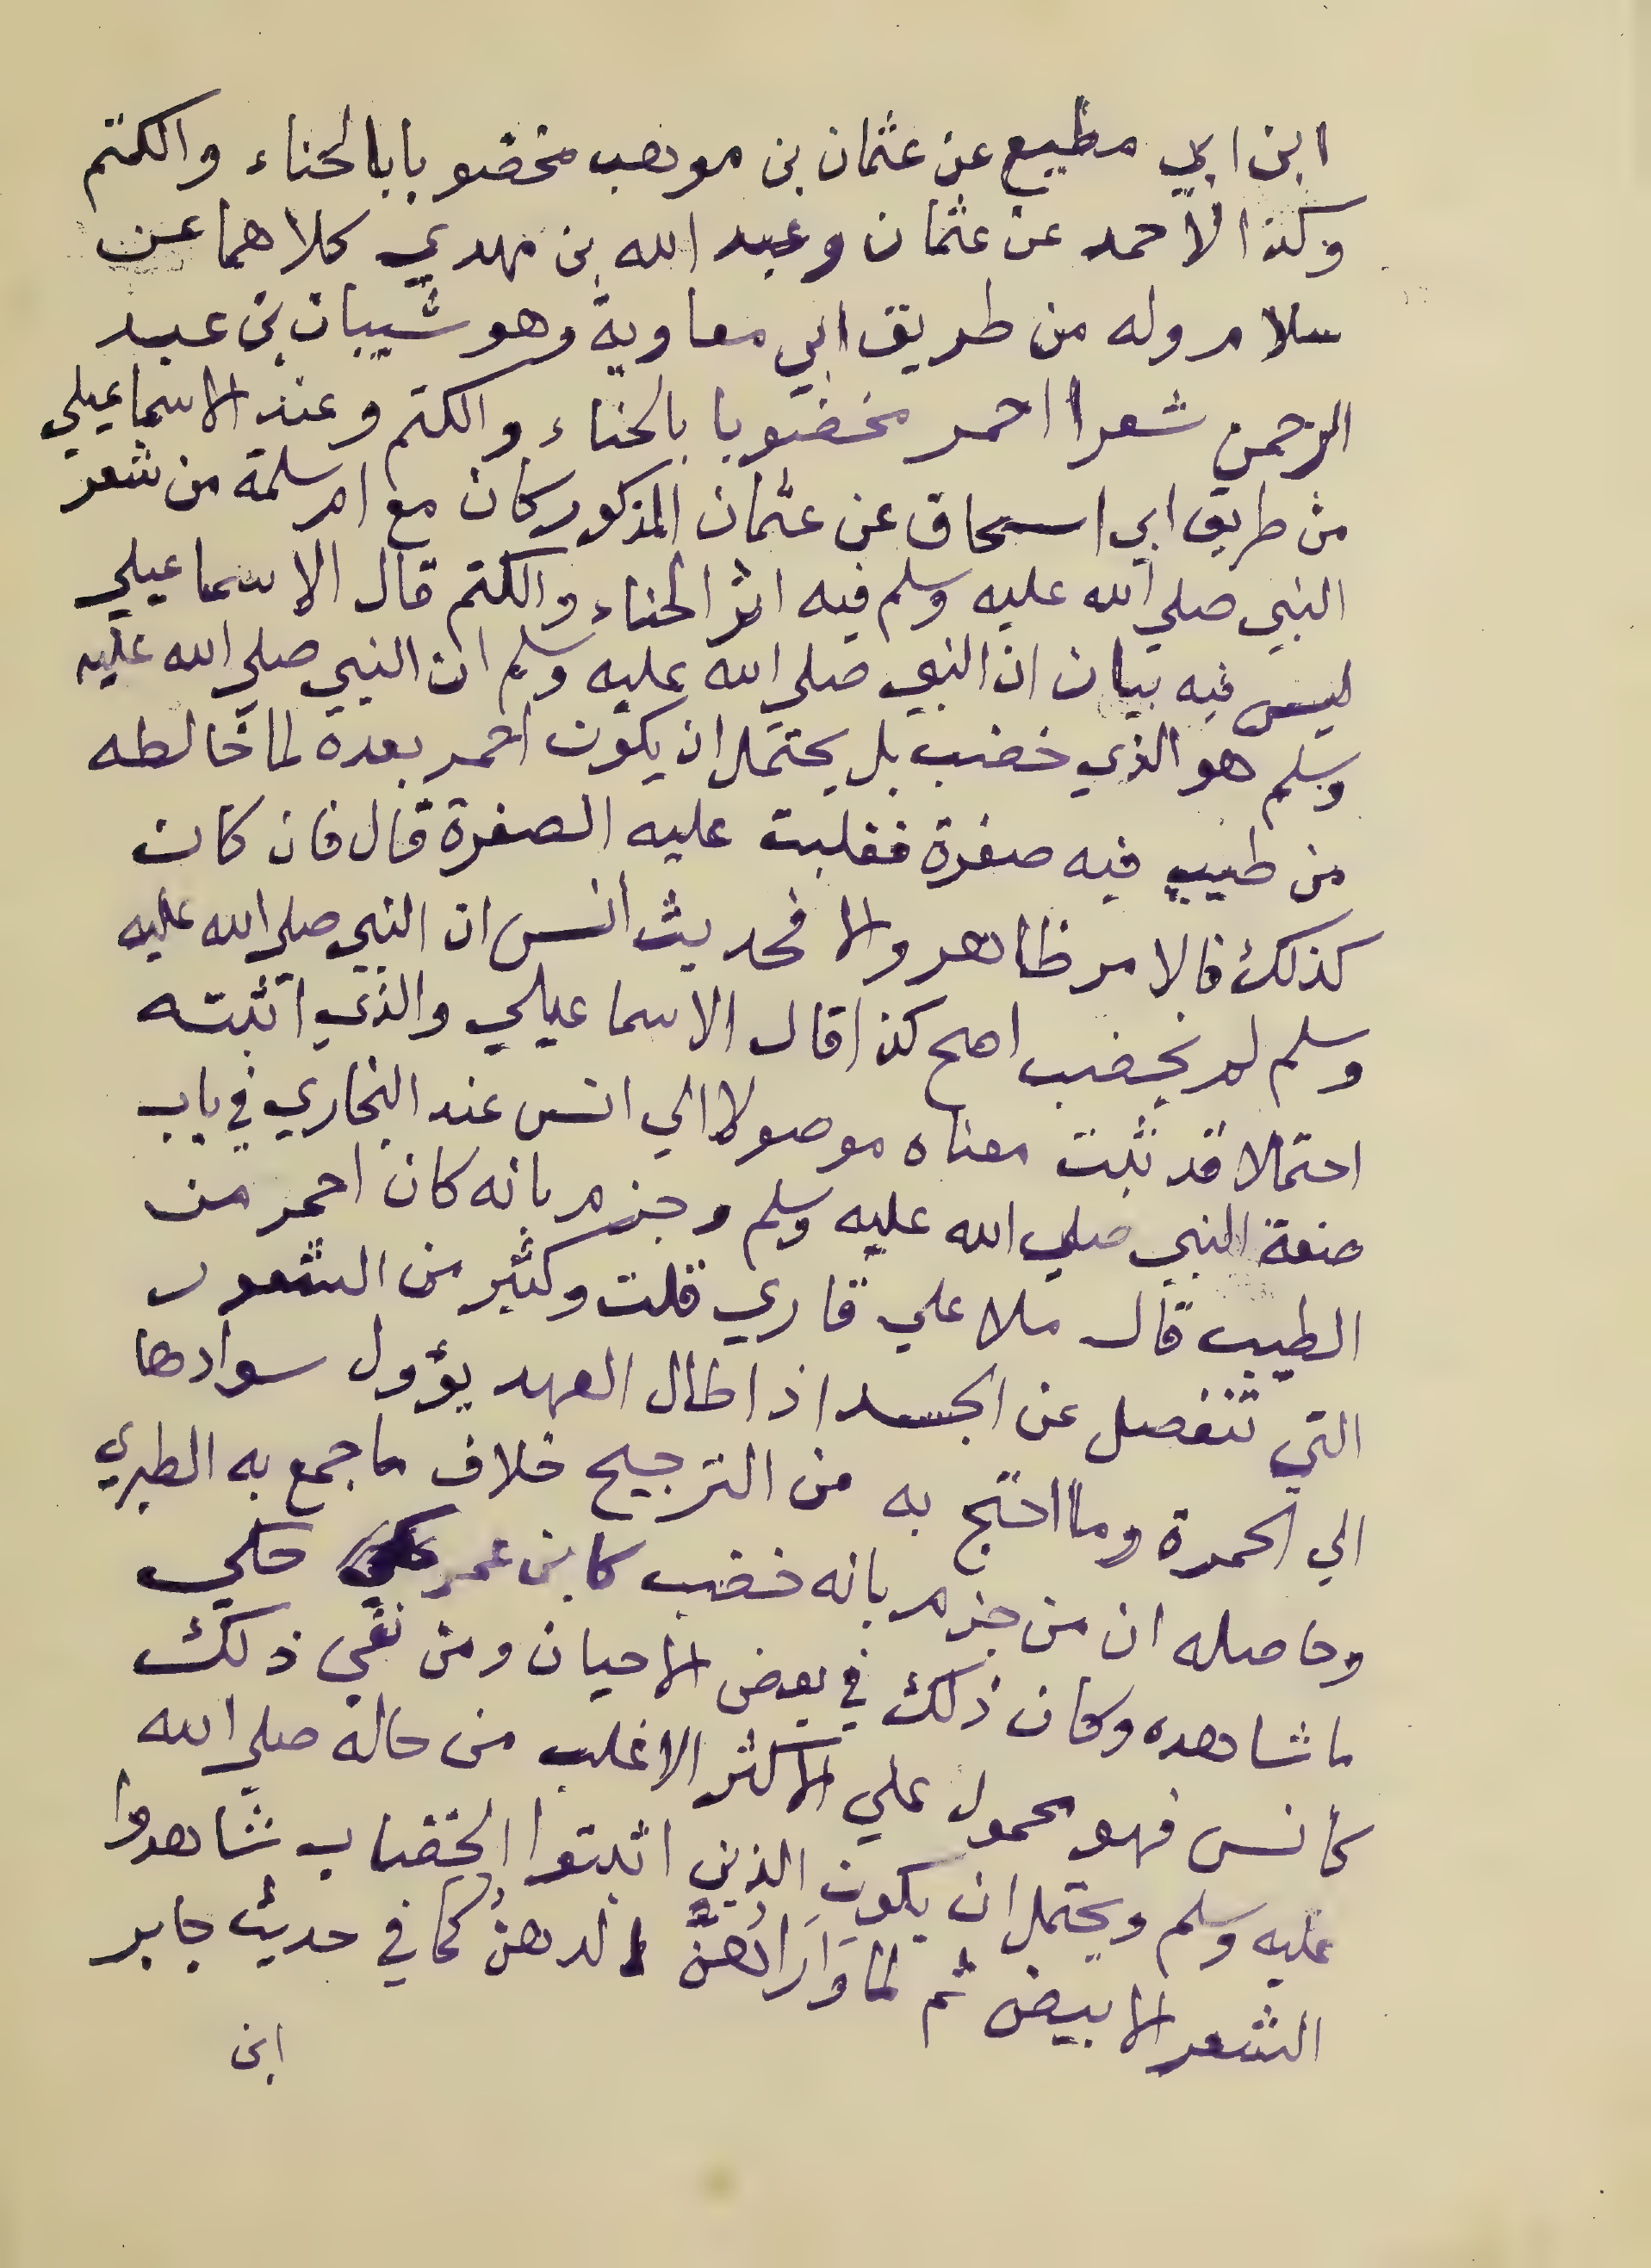 ابن ابي مطيع عن عثمان بن موهب مخضوبا بالحناء والكتم
وكذا لاحمد عن عثمان وعبد الله بن مهدي كلاهما عن
سلام وله من طريق ابي معاوية وهو شيبان بن عبد
الرحمن شعرا احمر مخضوبا بالحناء والكتم وعند الاسماعيلي
من طريق ابي اسحاق عن عثمان المذكور كان مع ام سلمة من شعر
النبي صلي الله عليه وسلم فيه اثر الحناء والكتم قال الاسماعيلي
ليس فيه بيان ان النبي صلي الله عليه وسلم ان النبي صلي الله عليه
وسلم هو الذي خضب بل يحتمل ان يكون احمر بعده لما خالطه
من طيب فيه صفرة فغلبت عليه الصفرة قال فان كان
كذلك فالامر ظاهر والا فحديث أنس ان النبي صلي الله عليه
وسلم لم يخضب اصح كذا قال الاسماعيلي والذي اثبته
احتمالا قد ثبت معناه موصولا الي انس عند البخاري في باب
صفة النبي صلي الله عليه وسلم وجزم بانه كان احمر من
الطيب قال ملا علي قاري قلت وكثير من الشعور
التي تنفصل عن الجسد اذا طال العهد يؤول سوادها
الي الحمرة وما احتج به من الترجيح خلاف ما جمع به الطبري
وحاصله ان من جزم بانه خضب كابن عمر حكي
ما شاهده وكان ذلك في بعض الاحيان ومن نفي ذلك
كانس فهو محمول علي الاكثر الاغلب من حاله صلي الله
عليه وسلم ويحتمل ان يكون الذين اثبتوا الخضاب شاهدوا
الشعر الابيض ثم لما وَارَاهُنَّ الدهنُ كما في حديث جابر
ابن